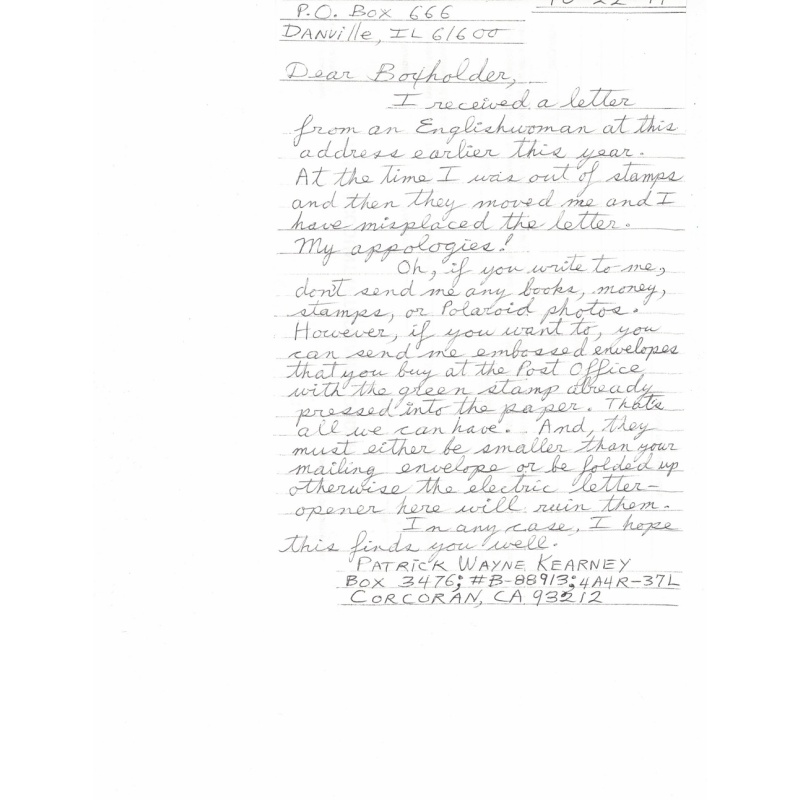 P.O. Box 666
DANVille, IL 61600
Dear Boxholder,
I received a letter
from an Englishwoman at this
address earlier this year.
At the time I was out of stamps
and then they moved me and I
have misplaced the letter.
My appologies!
Oh, if you write to me,
don't send me any books, money,
stamps, or Polaroid photos.
However, if you want to, you
can send me embossed envelopes
that you buy at the Post Office
with the green stamp already
pressed into the paper. That's
all we can have. And, they
must either be smaller than your
mailing envelope or be folded up
otherwise the electric letter-
opener here will ruin them.
In any case, I hope
this finds you well.
PATRICK WAYNE KEARNEY
BOX 3476; #B-88913; 4A4R-37L
CORCORAN, CA 93212